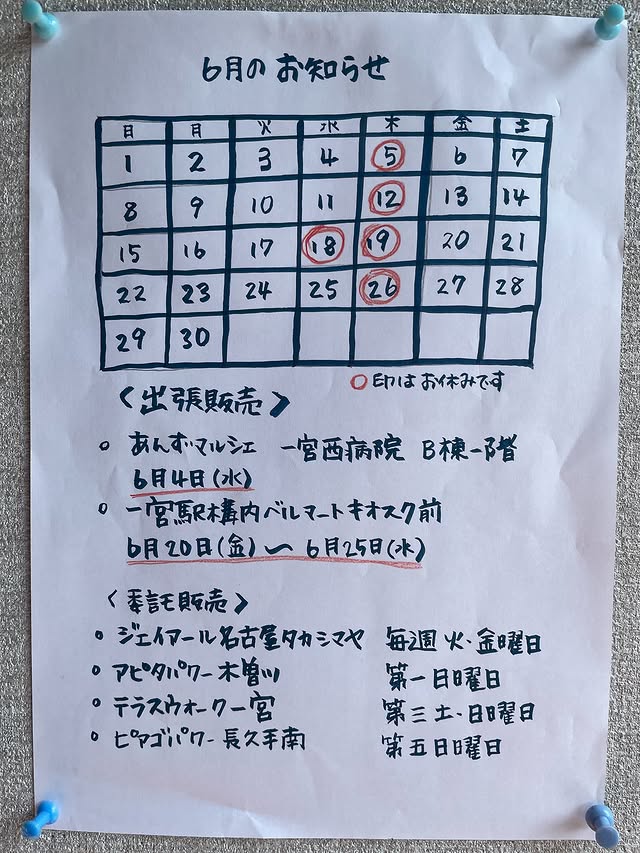 6月のお知らせ
日 月 火 水 木 金 土
1 2 3 4 5 6 7
8 9 10 11 12 13 14
15 16 17 18 19 20 21
22 23 24 25 26 27 28
29 30
○印はお休みです
〈出張販売〉
○ あんずマルシェ 一宮西病院 B棟一階
6月4日(水)
○ 一宮駅構内ベルマートキオスク前
6月20日(金)〜6月25日(水)
〈委託販売〉
○ ジェイアール名古屋タカシマヤ 毎週 火・金曜日
○ アピタパワー木曽川 第一日曜日
○ テラスウォーク一宮 第三土・日曜日
○ ピアゴパワー長久手南 第五日曜日